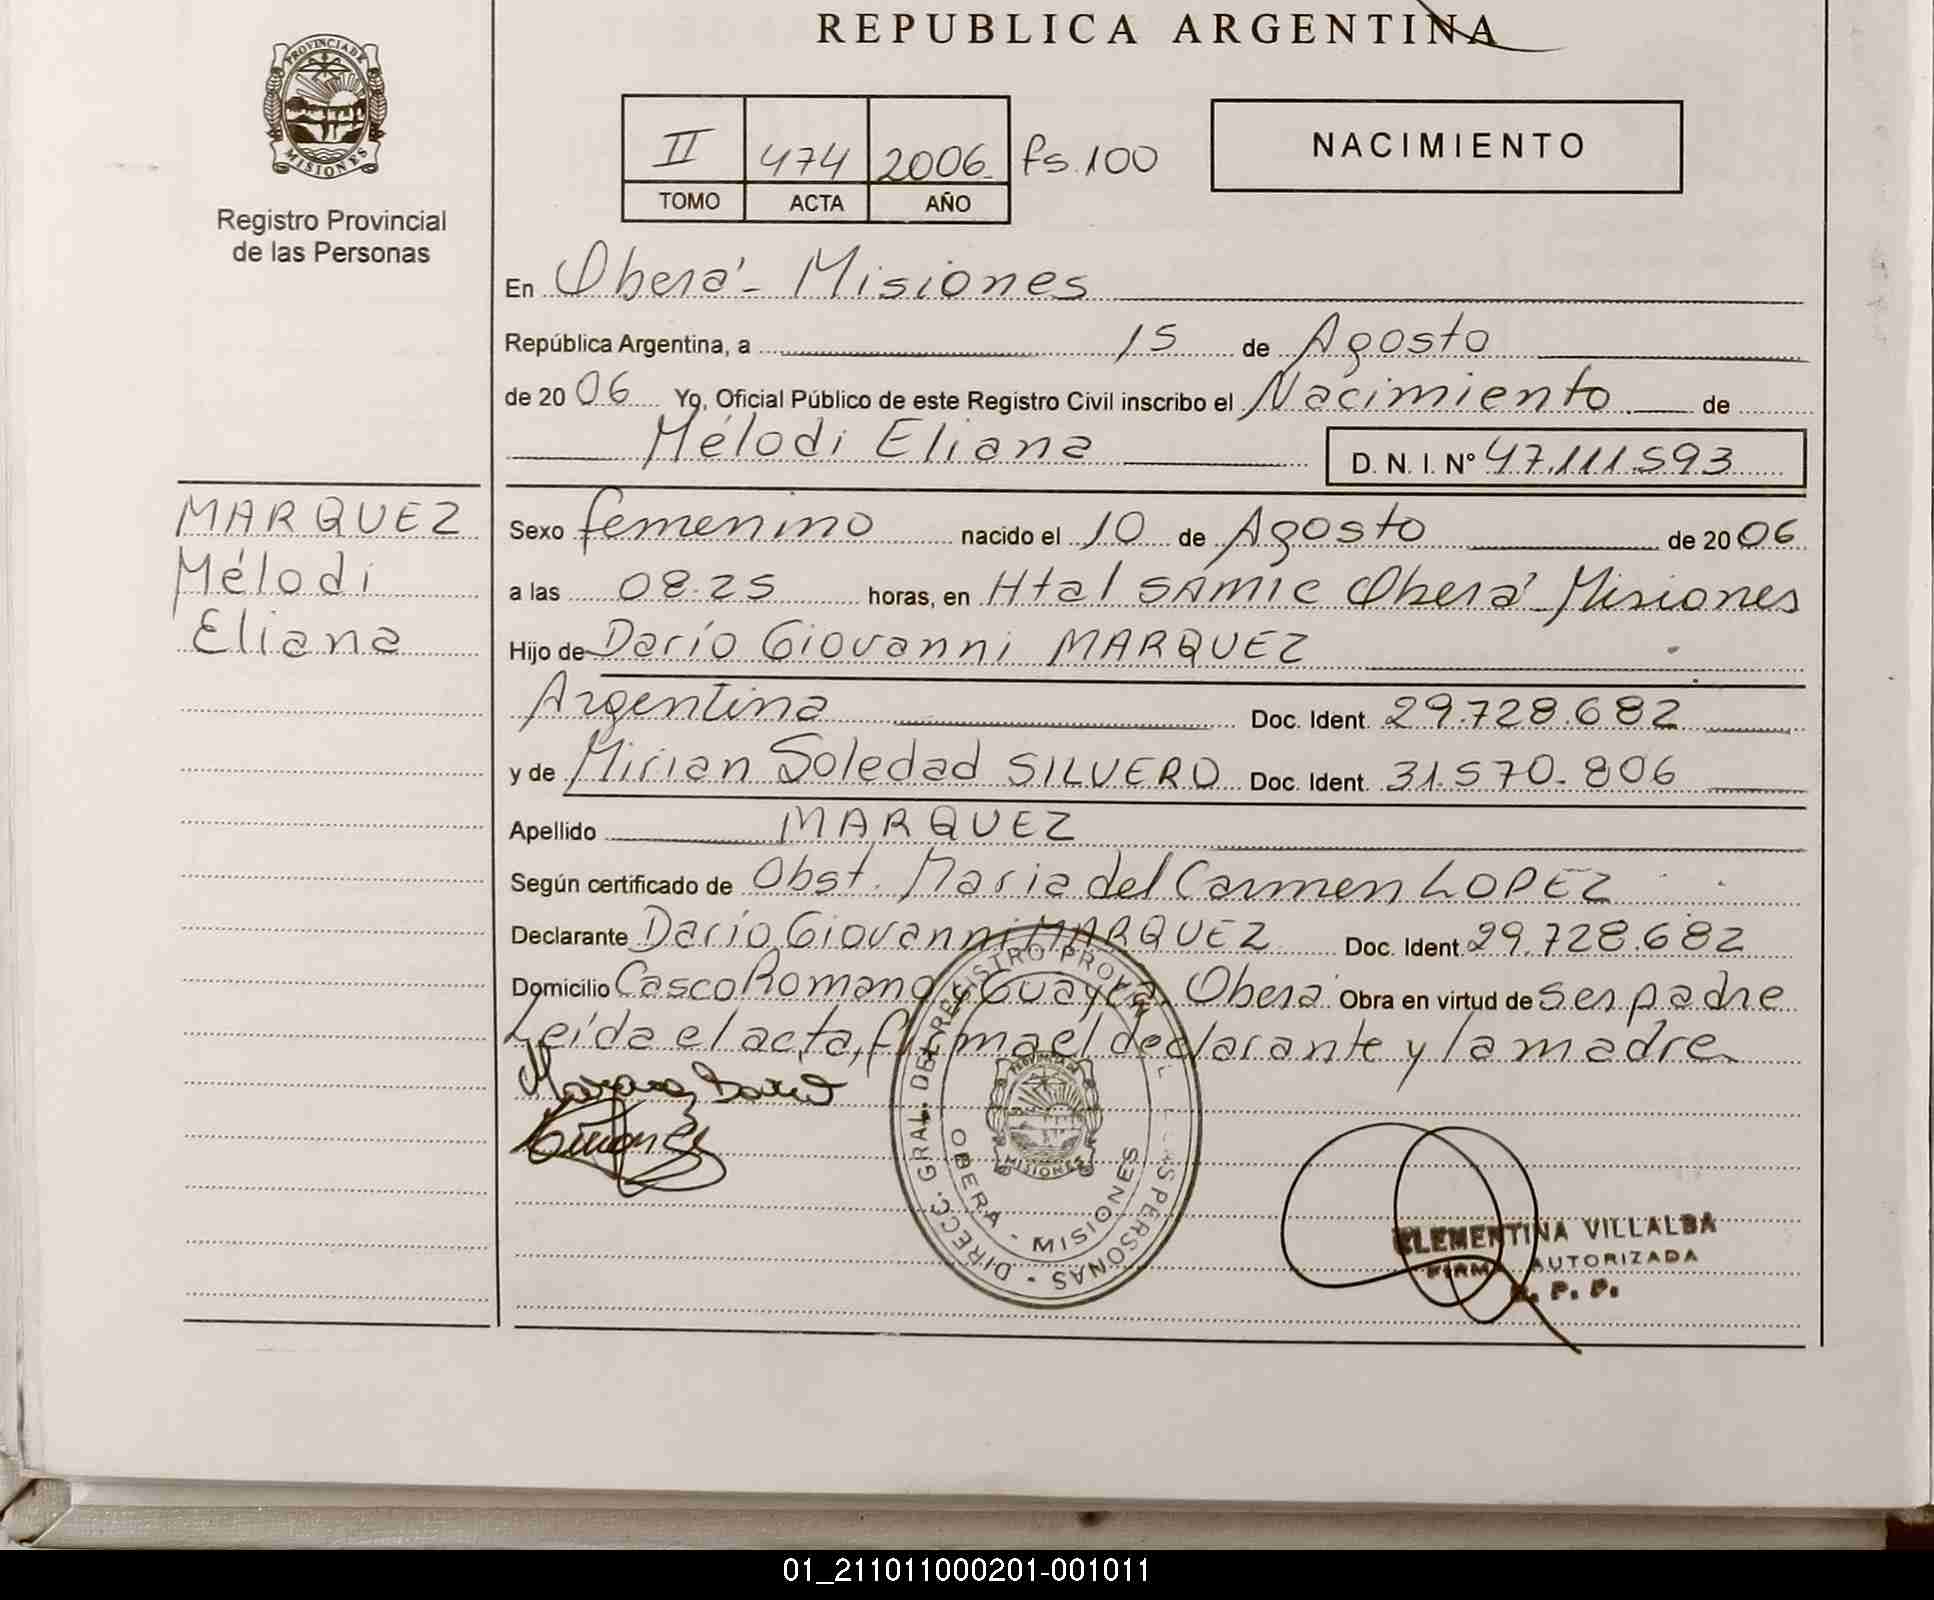 REPUBLICA ARGENTINA
PROVINCIA DE MISIONES
Registro Provincial
de las Personas
II 474 2006 fs.100
TOMO ACTA AÑO
NACIMIENTO
En Oberá - Misiones
República Argentina, a 15 de Agosto
de 2006 Yo, Oficial Público de este Registro Civil inscribo el Nacimiento de
Mélodi Eliana D. N. I. Nº 47.111.593
MARQUEZ
Mélodi
Eliana
Sexo femenino nacido el 10 de Agosto de 2006
a las 08.25 horas, en Htal SAMIC Oberá - Misiones
Hijo de Darío Giovanni MARQUEZ
Argentina Doc. Ident. 29.728.682
y de Mirian Soledad SILVERO Doc. Ident. 31.570.806
Apellido MARQUEZ
Según certificado de Obst. Maria del Carmen LOPEZ
Declarante Darío Giovanni MARQUEZ Doc. Ident. 29.728.682
Domicilio Casco Romano y Oberá Obra en virtud de ser padre
Leída el acta, firma el declarante y la madre
DIRECC. GRAL. DEL REGISTRO PROVINCIAL PERSONAS
PROVINCIA DE MISIONES
OBERA - MISIONES
CLEMENTINA VILLALBA
FIRMA AUTORIZADA
R. P. P.
01_211011000201-001011